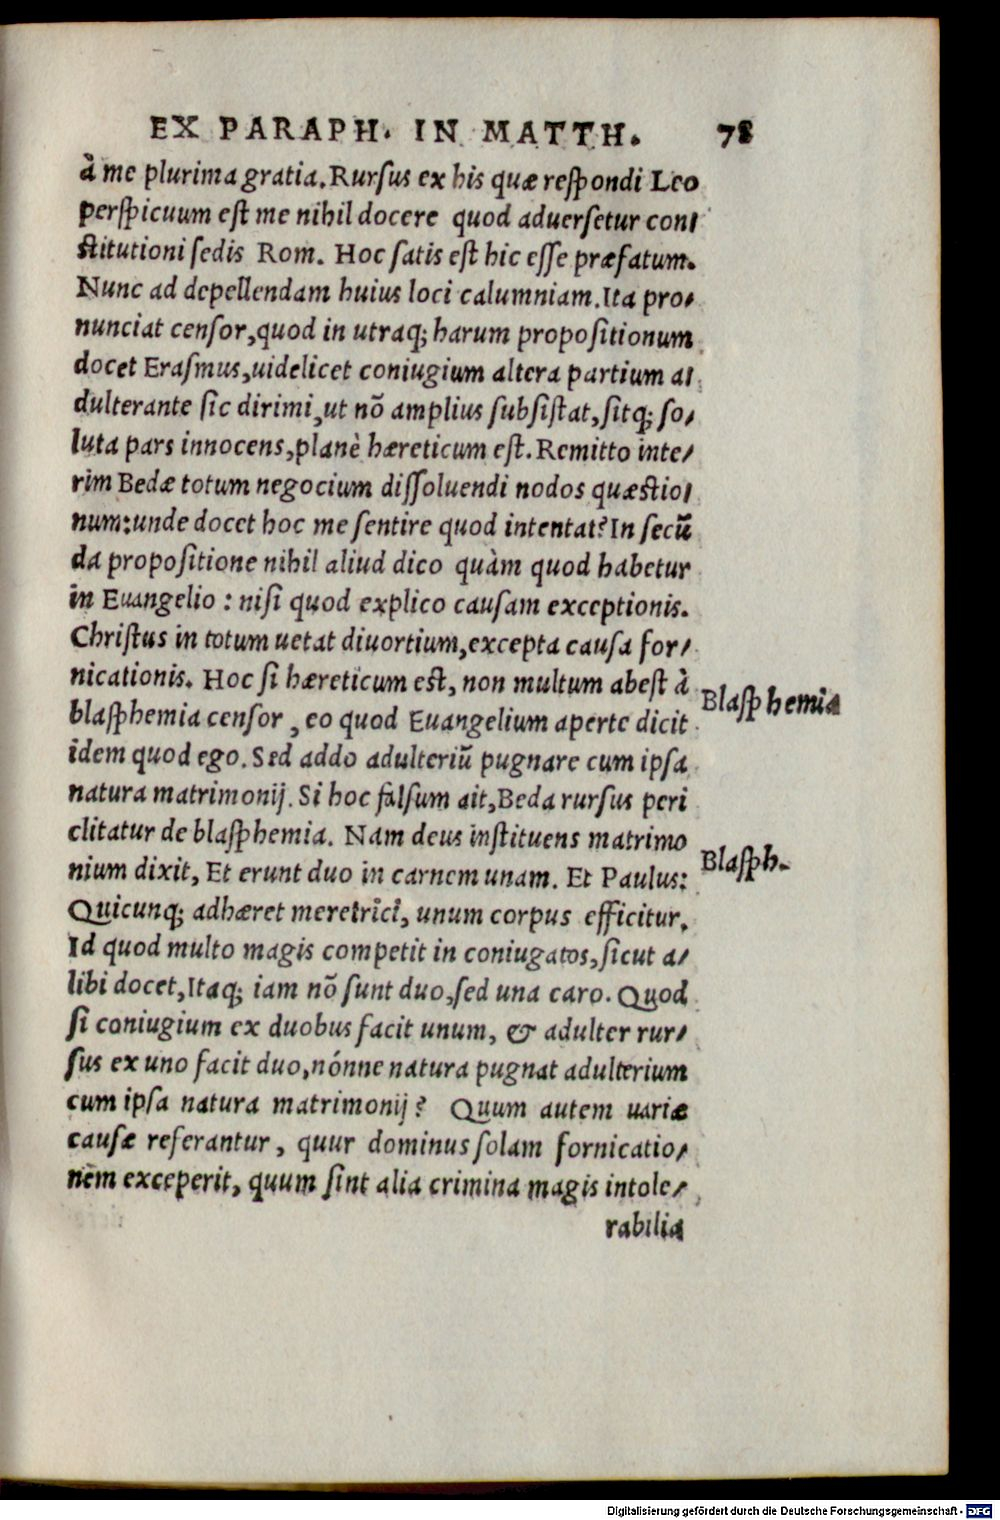 EX PARAPH. IN MATTH. 78
à me plurima gratia. Rursus ex his quæ respondi Leo
perspicuum est me nihil docere quod aduersetur con/
stitutioni sedis Rom. Hoc satis est hic esse præfatum.
Nunc ad depellendam huius loci calumniam. Ita pro/
nunciat censor, quod in utraq; harum propositionum
docet Erasmus, uidelicet coniugium altera partium a/
dulterante sic dirimi, ut nõ amplius subsistat, sitq; so/
luta pars innocens, planè hæreticum est. Remitto inte/
rim Bedæ totum negocium dissoluendi nodos quæstio/
num: unde docet hoc me sentire quod intentat? In secũ
da propositione nihil aliud dico quàm quod habetur
in Euangelio : nisi quod explico causam exceptionis.
Christus in totum uetat diuortium, excepta causa for/
nicationis. Hoc si hæreticum est, non multum abest à
Blasphemia
blasphemia censor, eo quod Euangelium aperte dicit
idem quod ego. Sed addo adulteriũ pugnare cum ipsa
natura matrimonij. Si hoc falsum ait, Beda rursus peri
clitatur de blasphemia. Nam deus instituens matrimo
Blasph.
nium dixit, Et erunt duo in carnem unam. Et Paulus:
Quicunq; adhæret meretrici, unum corpus efficitur.
Id quod multo magis competit in coniugatos, sicut a/
libi docet, Itaq; iam nõ sunt duo, sed una caro. Quod
si coniugium ex duobus facit unum, & adulter rur/
sus ex uno facit duo, nónne natura pugnat adulterium
cum ipsa natura matrimonij? Quum autem uariæ
causæ referantur, quur dominus solam fornicatio/
nem exceperit, quum sint alia crimina magis intole/
rabilia
Digitalisierung gefördert durch die Deutsche Forschungsgemeinschaft - DFG